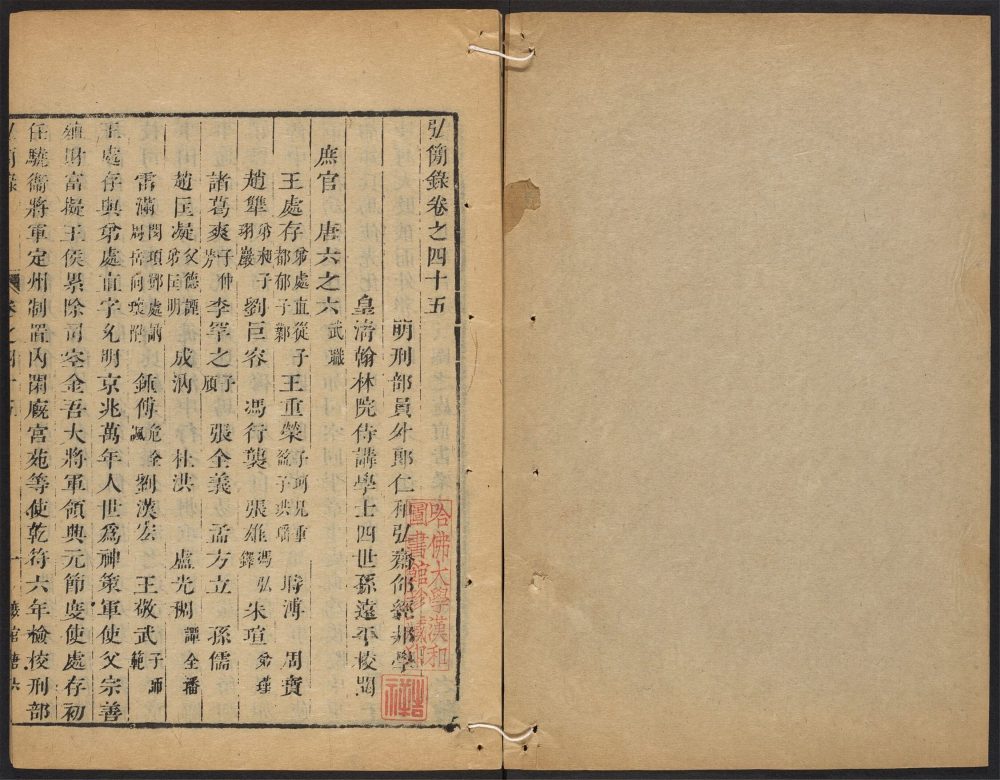 弘簡錄卷之四十五
明刑部員外郎仁和弘齋邵經邦學
皇清翰林院侍講學士四世孫遠平校閱
庶官 唐六之六 武職
王處存 弟處直從子都郁子鄴 王重榮 子珂兄重盈子珙瑤 時溥 周寶
趙犨 弟昶子珝巖 劉巨容 馮行襲 張雄 馮弘鐸 朱瑄 弟瑾
諸葛爽 子仲方 李罕之 子頎 張全義 孟方立 孫儒
趙匡凝 父德諲弟匡明 成汭 杜洪 盧光稠 譚全播
雷滿 周岳向瓌附 鍾傅 危全諷 劉漢宏 王敬武 子師範
王處存與弟處直字允明京兆萬年人世為神策軍使父宗善
殖財富擬王侯累除司空金吾大將軍領興元節度使處存初
任驍衛將軍定州制置內閑廄宮苑等使乾符六年檢校刑部
卷之四十五
哈佛大學漢和圖書館珍藏印